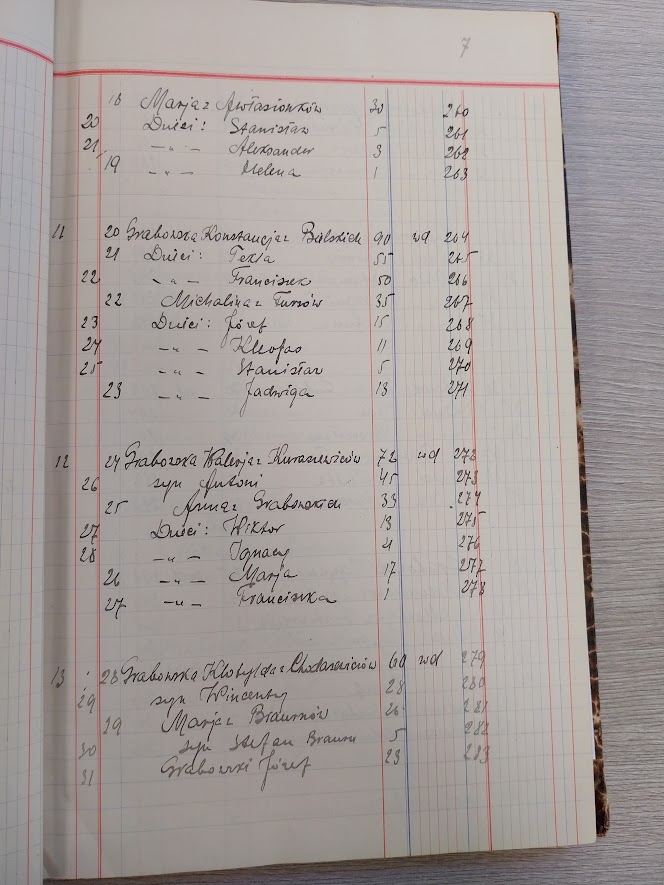 7
18 Marja z Awłasionków 30 260
20 Dzieci: Stanisław 5 261
21 — „ — Aleksander 3 262
19 — „ — Helena 1 263
11 20 Grabowska Konstancja z Bielskich 90 wd 264
21 Dzieci: Tekla 55 265
22 — „ — Franciszek 50 266
22 Michalina z 35 267
23 Dzieci: Józef 15 268
24 — „ — Kleofas 11 269
25 — „ — Stanisław 5 270
23 — „ — Jadwiga 13 271
12 24 Grabowska Walerja z Kuraszewiczów 72 wd 272
26 syn Antoni 45 273
25 Anna z Grabowskich 33 274
27 Dzieci: Wiktor 13 275
28 — „ — Ignacy 276
26 — „ — Marja 17 277
27 — „ — Franciszka 1 278
13 28 Grabowska Klotylda z Chodasewiczów 60 wd 279
29 syn Wincenty 28 280
29 Marja z 26 281
30 syn Stefan 5 282
31 Grabowski Józef 23 283